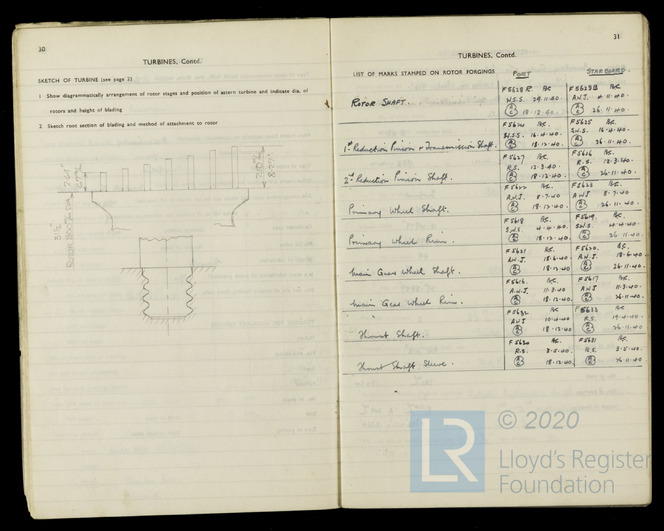 30
TURBINES, Contd.
SKETCH OF TURBINE (see page 2)
1 Show diagrammatically arrangement of rotor stages and position of astern turbine and indicate dia. of
rotors and height of blading
2 Sketch root section of blading and method of attachment to rotor
31
TURBINES, Contd.
LIST OF MARKS STAMPED ON ROTOR FORGINGS
PORT
STARBOARD.
ROTOR SHAFT.
W.S.S. 29.11.40.
A.W.J. 4.11.40.
18.12.40.
26.11.40.
1st Reduction Pinion & Transmission Shaft.
F5624
F5625
W.S.S. 16.4.40.
S.W.S. 16.4.40.
18.12.40.
26.11.40.
2nd Reduction Pinion Shaft.
F5627
F5626
R.S. 12.3.40.
R.S. 12.3.40.
18.12.40.
26.11.40.
Primary Wheel Shaft.
F5622
F5623
A.W.J. 8.7.40
A.W.J 8.7.40
18.12.40.
26.11.40.
Primary Wheel Rim.
F5618
F5619.
S.W.S. 4.4.40.
S.W.S. 4.4.40.
18.12.40.
26.11.40.
Main Gear Wheel Shaft.
F5621
F5620.
A.W.J. 18.6.40.
A.W.J. 18.6.40.
18.12.40
26.11.40.
Main Gear Wheel Rim.
F5616.
F5617
A.W.J. 11.3.40
A.W.J. 11.3.40.
18.12.40.
26.11.40.
Thrust Shaft.
F5632
A.W.J 10.4.40
R.S. 19.4.40.
18.12.40
26.11.40
Thrust Shaft Sleeve.
F5630
F5631
R.S. 3.5.40.
R.S. 3.5.40.
18.12.40.
26.11.40
LR
© 2020
Lloyd's Register
Foundation